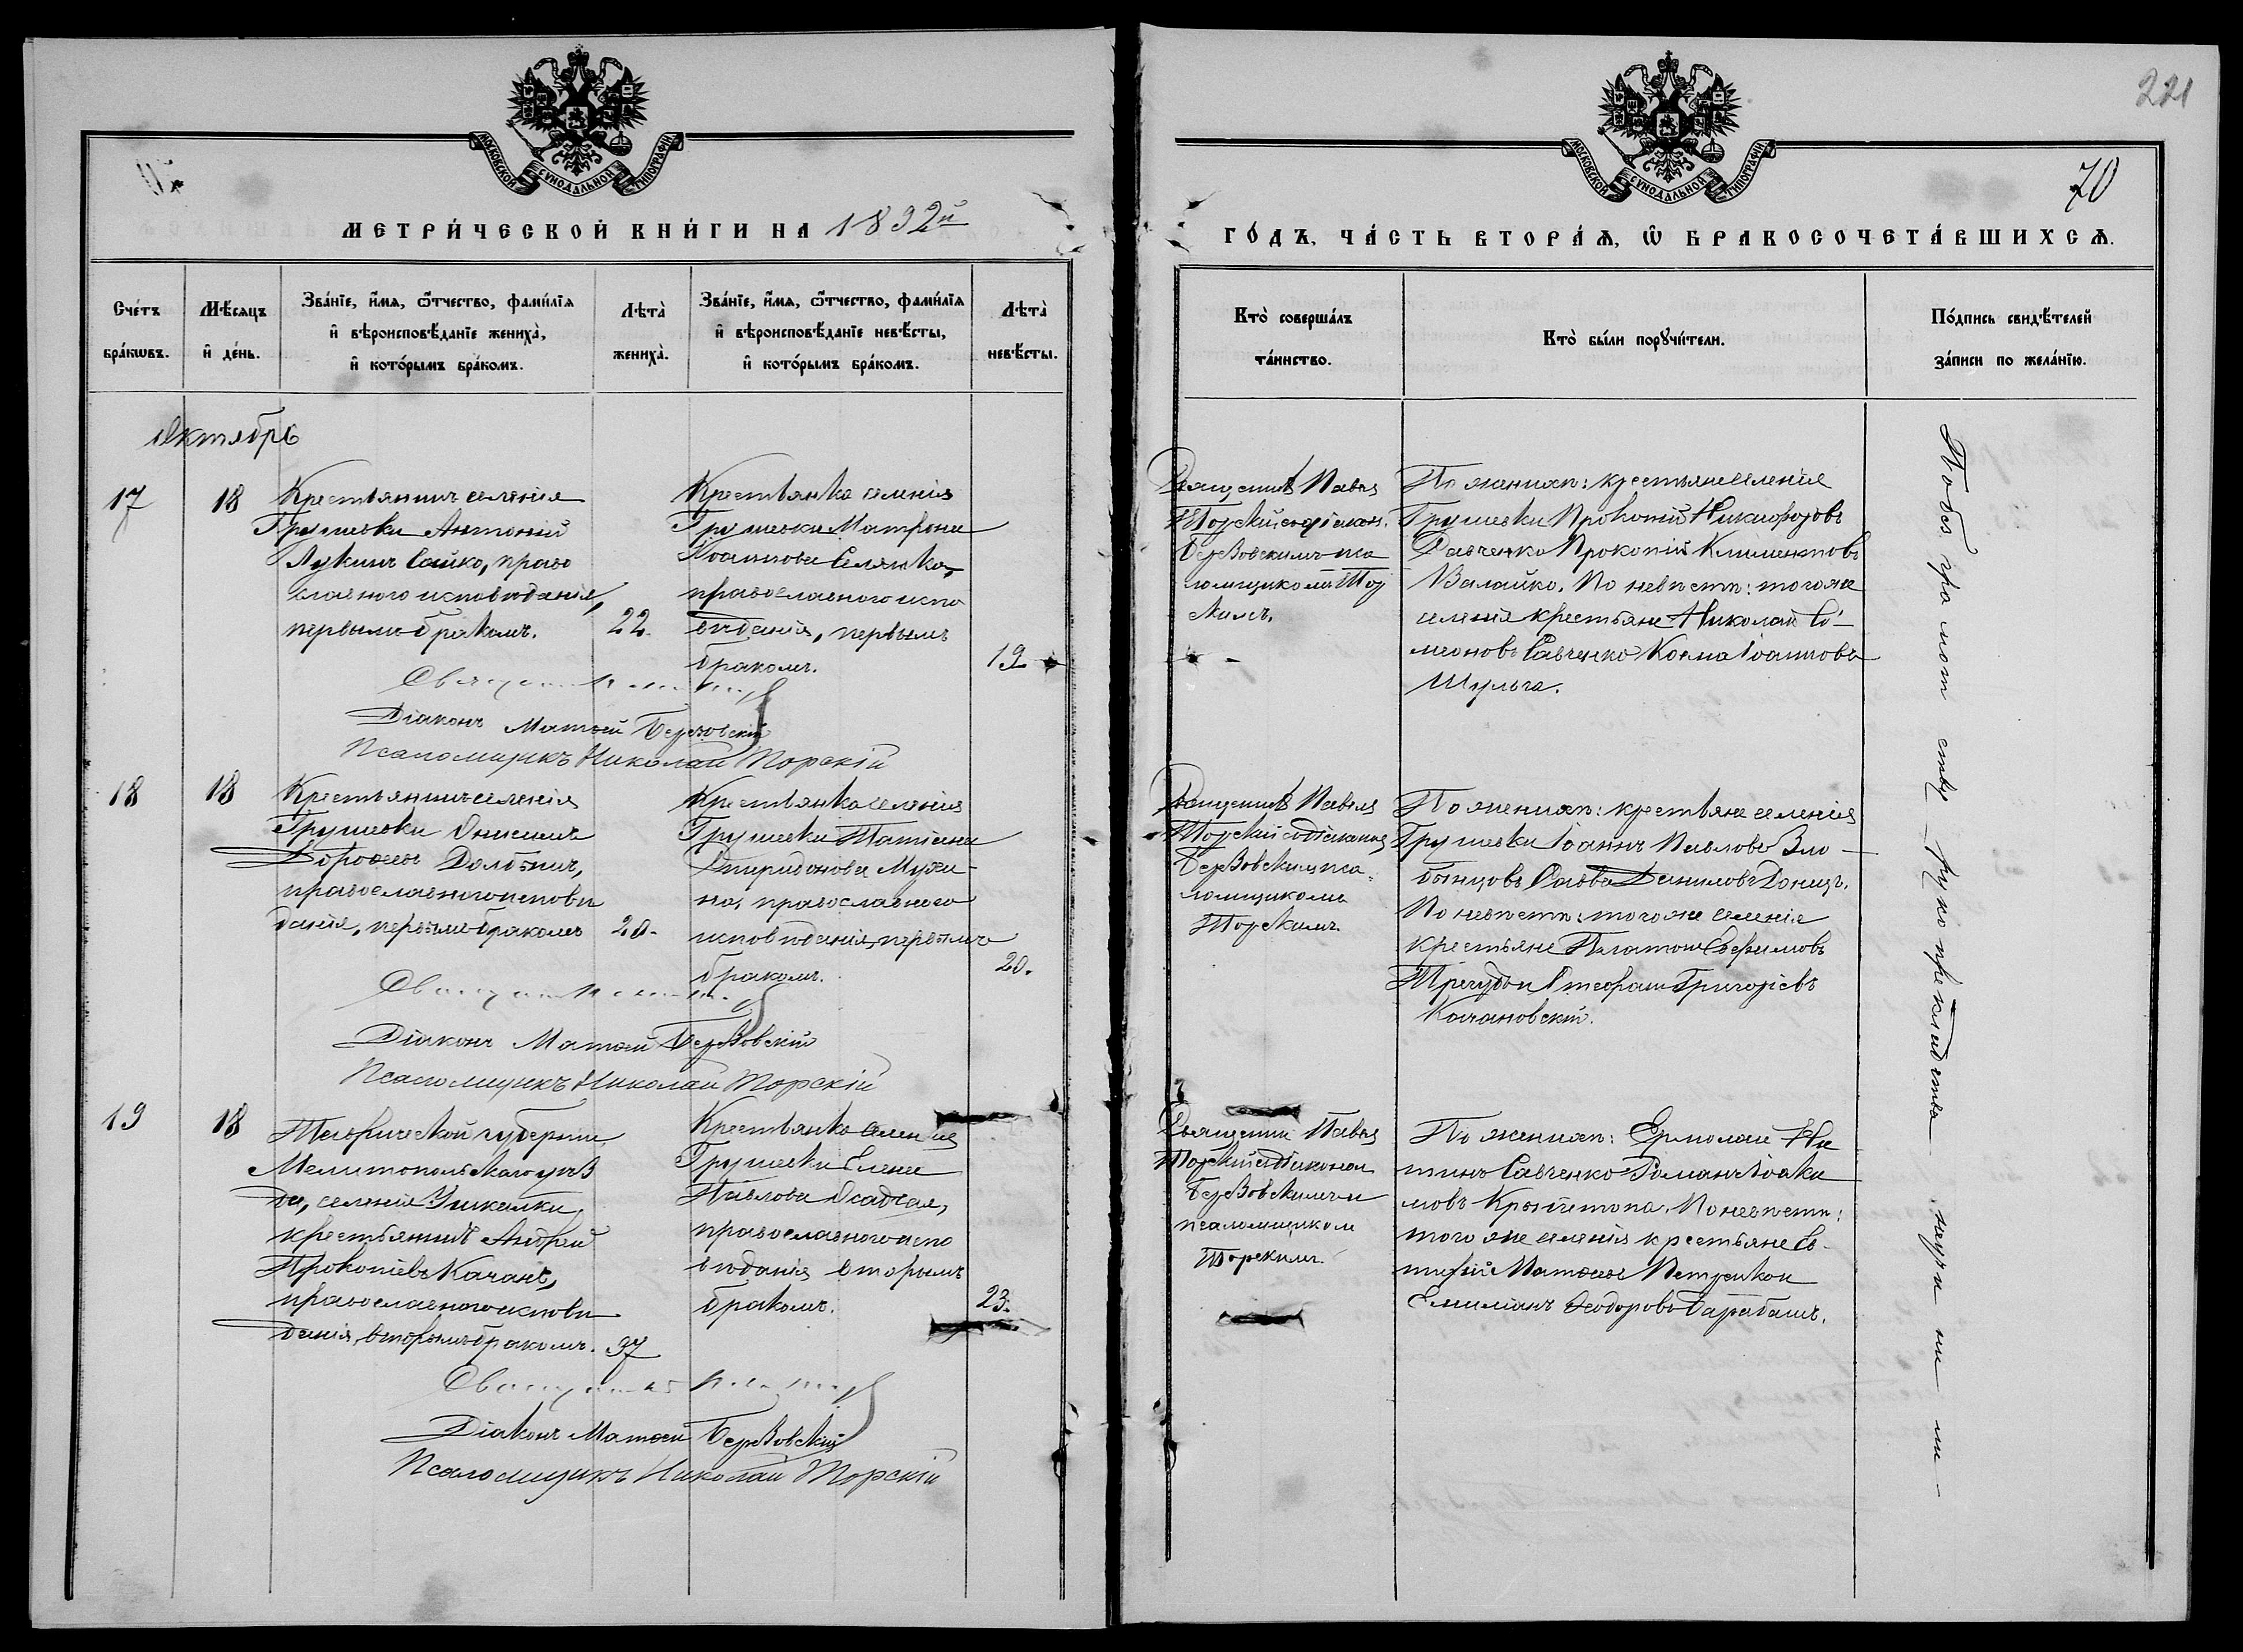 МОСКОВСКОЙ СУНОДАЛЬНОЙ ТИПОГРАФІИ
МЕТРИ́ЧЕСКОЙ КНИ́ГИ НА 1892й
Сче́тъ бра́кωвъ.
Мѣ́сяцъ и҆ де́нь.
Зва́нїе, и҆́мѧ, ѻ҆́тчество, фами́лїѧ и҆ вѣроисповѣ́данїе жениха̀, и҆ кото́рымъ бра́комъ.
Лѣта̀ жениха̀.
Зва́нїе, и҆́мѧ, ѻ҆́тчество, фами́лїѧ и҆ вѣроисповѣ́данїе невѣ́сты, и҆ кото́рымъ бра́комъ.
Лѣта̀ невѣ́сты.
Октябрь
17
18
Крестьянинъ селенія
Грушевки Антоній
Лукинъ Сайко, право
славнаго исповѣданія,
первымъ бракомъ.
22.
Крестьянка селенія
Грушевки Матрона
Іоаннова
православнаго испо
вѣданія, первымъ
бракомъ.
19
Священникъ
Діаконъ Матѳей Березовскій
Псаломщикъ Николай Торскій
18
18
Крестьянинъ селенія
Грушевки Онисимъ
Дороѳеевъ
православнаго исповѣ
данія, первымъ бракомъ
20.
Крестьянка селенія
Грушевки Татіана
Спиридонова
православнаго
исповѣданія, первымъ
бракомъ.
20.
Священникъ
Діаконъ Матѳей Березовскій
Псаломщикъ Николай Торскій
19
18
Таврической губерніи
Мелитопольскаго уѣз
да, селенія Ушкалки,
крестьянинъ Андрей
Прокопіевъ Качанъ,
православнаго исповѣ
данія, вторымъ бракомъ.
37
Крестьянка селенія
Грушевки Елена
Павлова Осадчая,
православнаго испо
вѣданія вторымъ
бракомъ.
23.
Священникъ
Діаконъ Матѳей Березовскій
Псаломщикъ Николай Торскій
221
70
МОСКОВСКОЙ СУНОДАЛЬНОЙ ТИПОГРАФІИ
ГО́ДЪ, ЧА́СТЬ ВТОРА́Ѧ, Ѽ БРАКОСОЧЕТА́ВШИХСѦ.
Кто̀ соверша́лъ та́инство.
Кто̀ бы́ли порꙋчи́тели.
По́дпись свидѣ́телей за́писи по жела́нїю.
Священникъ Павелъ
Торскій съ діакон.
Березовскимъ пса
ломщикомъ Тор
скимъ.
По женихѣ: крестьяне селенія
Грушевки Прокопій Никифоровъ
Савченко Прокопій Климентовъ
Валайко. По невѣстѣ: того же
селенія крестьяне Николай Си
меоновъ Савченко Косма Іоанновъ
Шульга.
Священникъ Павелъ
Торскій съ діакономъ
Березовскимъ пса
ломщикомъ
Торскимъ.
По женихѣ: крестьяне селенія
Грушевки Іоаннъ Павловъ Зло
бинцовъ Савва Даниловъ Донецъ.
По невѣстѣ: того же селенія
крестьяне Платонъ Евфимовъ
Стефанъ Григоріевъ
Качановскій.
Священникъ Павелъ
Торскій съ діакономъ
Березовскимъ и
псаломщикомъ
Торскимъ.
По женихѣ: Ермолай Ни
тинъ Савченко Романъ Іоаки
мовъ. По невѣстѣ:
того же селенія крестьяне Ев
тихій Матѳеевъ Петренко и
Емиліанъ Ѳеодоровъ Барабашъ.